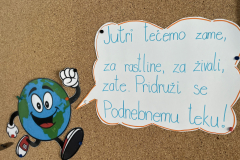 Jutri tečemo zame,
za rastline, za živali,
zate. Pridruži se
Podnebnemu teku!